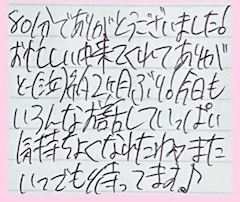 80分でありがとうございました!
お忙しい中来てくれてありが
と(泣)約2ヶ月ぶり。今日も
いろんな話していっぱい
気持ちよくなれたね また
いつでも待ってます♪